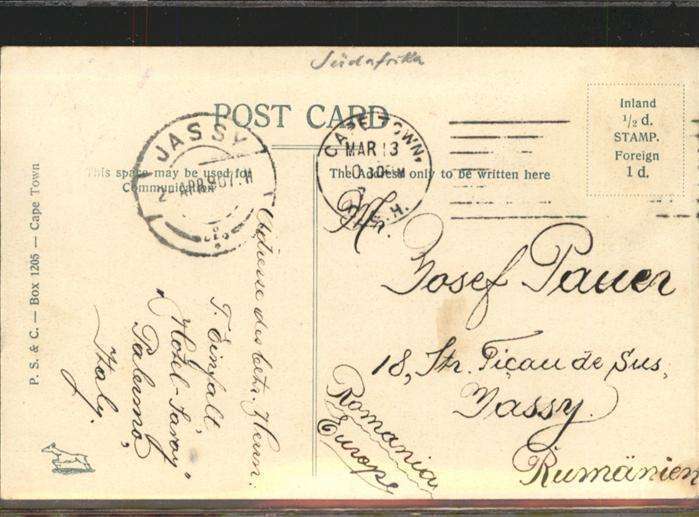 Südafrika
POST CARD
JASSY
2 APR 907. II
CAPE TOWN.
MAR 13
10.30 M
7
G.H.
Inland
½ d.
STAMP.
Foreign
1 d.
This space may be used for
Communication
The Address only to be written here
P. S. & C. — Box 1205 — Cape Town
Adresse des betr. Herrn:
T. Einfalt
"Hotel-Savoy"
Palermo,
Italy.
Mr.
Josef Pauer
18, Str. Picau de Sus,
Jassy.
Rumänien
Romania
Europe